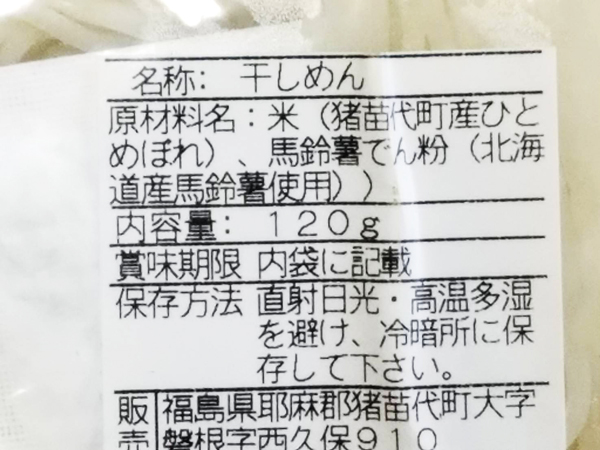 名称: 干しめん
原材料名:米(猪苗代町産ひと
めぼれ)、馬鈴薯でん粉(北海
道産馬鈴薯使用))
内容量: 120g
賞味期限 内袋に記載
保存方法 直射日光・高温多湿
を避け、冷暗所に保
存して下さい。
販 福島県耶麻郡猪苗代町大字
売 磐根字西久保910